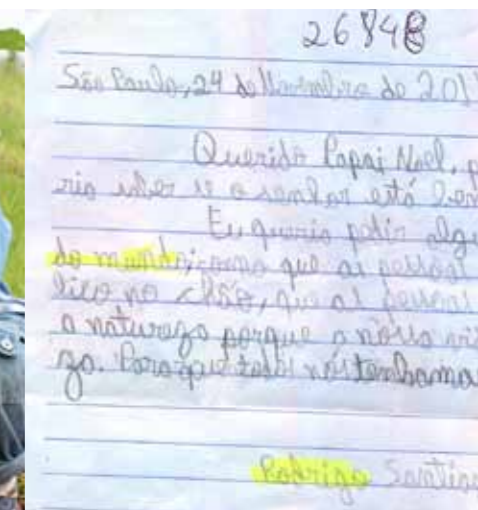 26848
São Paulo, 24 de Novembro de 201
Querido Papai Noel,
ria saber se o senhor está bem
Eu queria pedir algu
do mundo, como que as pessoas
lixo no chão, que as pessoas
a natureza porque a nossa
za. Para que todos nós tenhamos
Rodrigo Santia